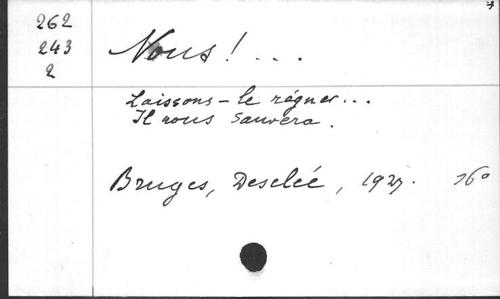 262
243
2
Nous! ...
Laissons-le régner...
Il nous sauvera.
Bruges, Desclée, 1927. 16°